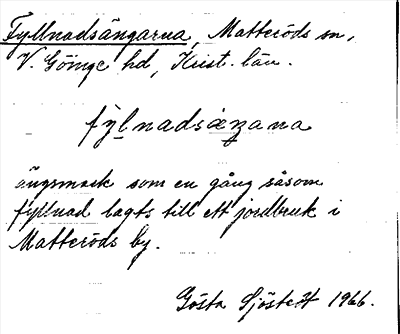 Fyllnadsängarna, Matteröds sn,
V. Göinge hd, Krist. län.
fylnadsæzana
ängsmark som en gång såsom
fyllnad lagts till ett jordbruk i
Matteröds by.
Gösta Sjöstedt 1966.